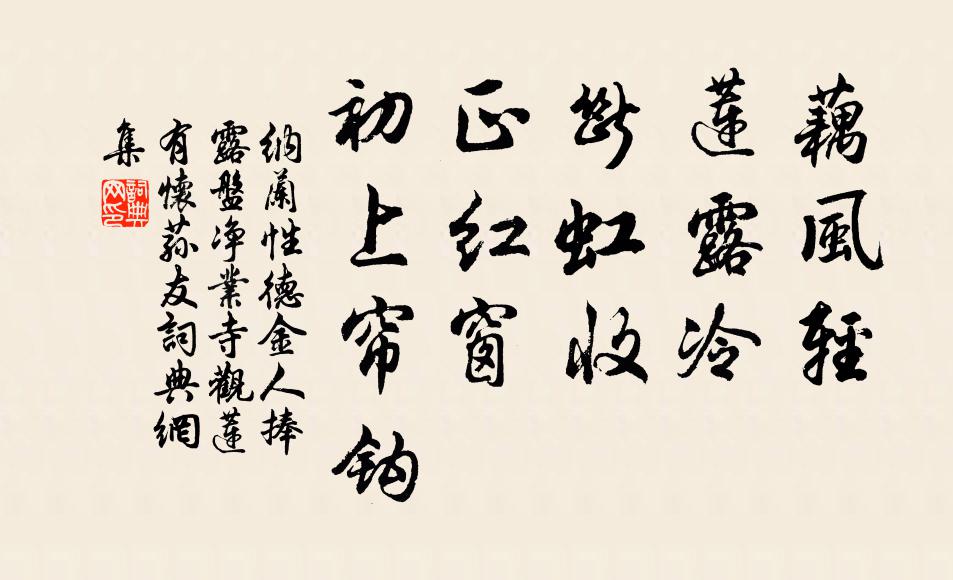 藕風輕
蓮露冷
斷虹收
正红窗
初上帘钩
納蘭性德金人捧
露盤净業寺觀蓮
有懷蓀友詞典網
集
詞典网印